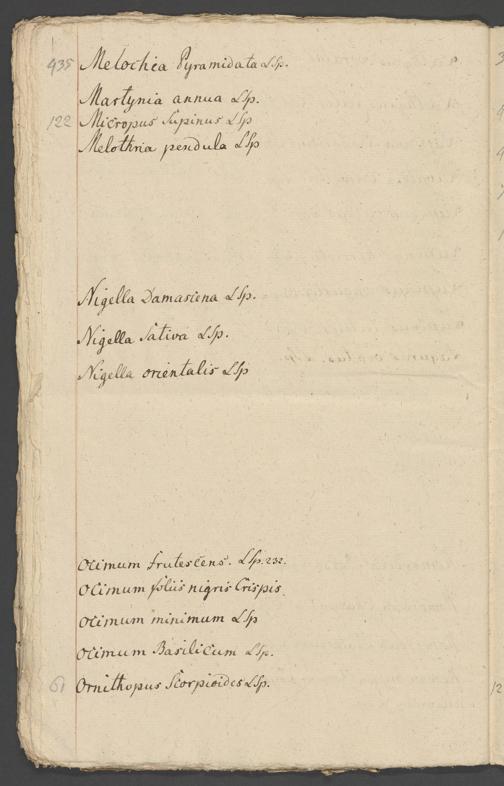 435 Melochia Pyramidata LSp.
Martynia annua LSp.
122 Micropus Supinus LSp
Melothria pendula LSp
Nigella Damascena LSp.
Nigella Sativa LSp.
Nigella orientalis LSp
Ocimum frutescens. LSp. 232.
Ocimum foliis nigris Crispis.
Ocimum minimum LSp
Ocimum Basilicum LSp.
61 Ornithopus Scorpioides LSp.
12